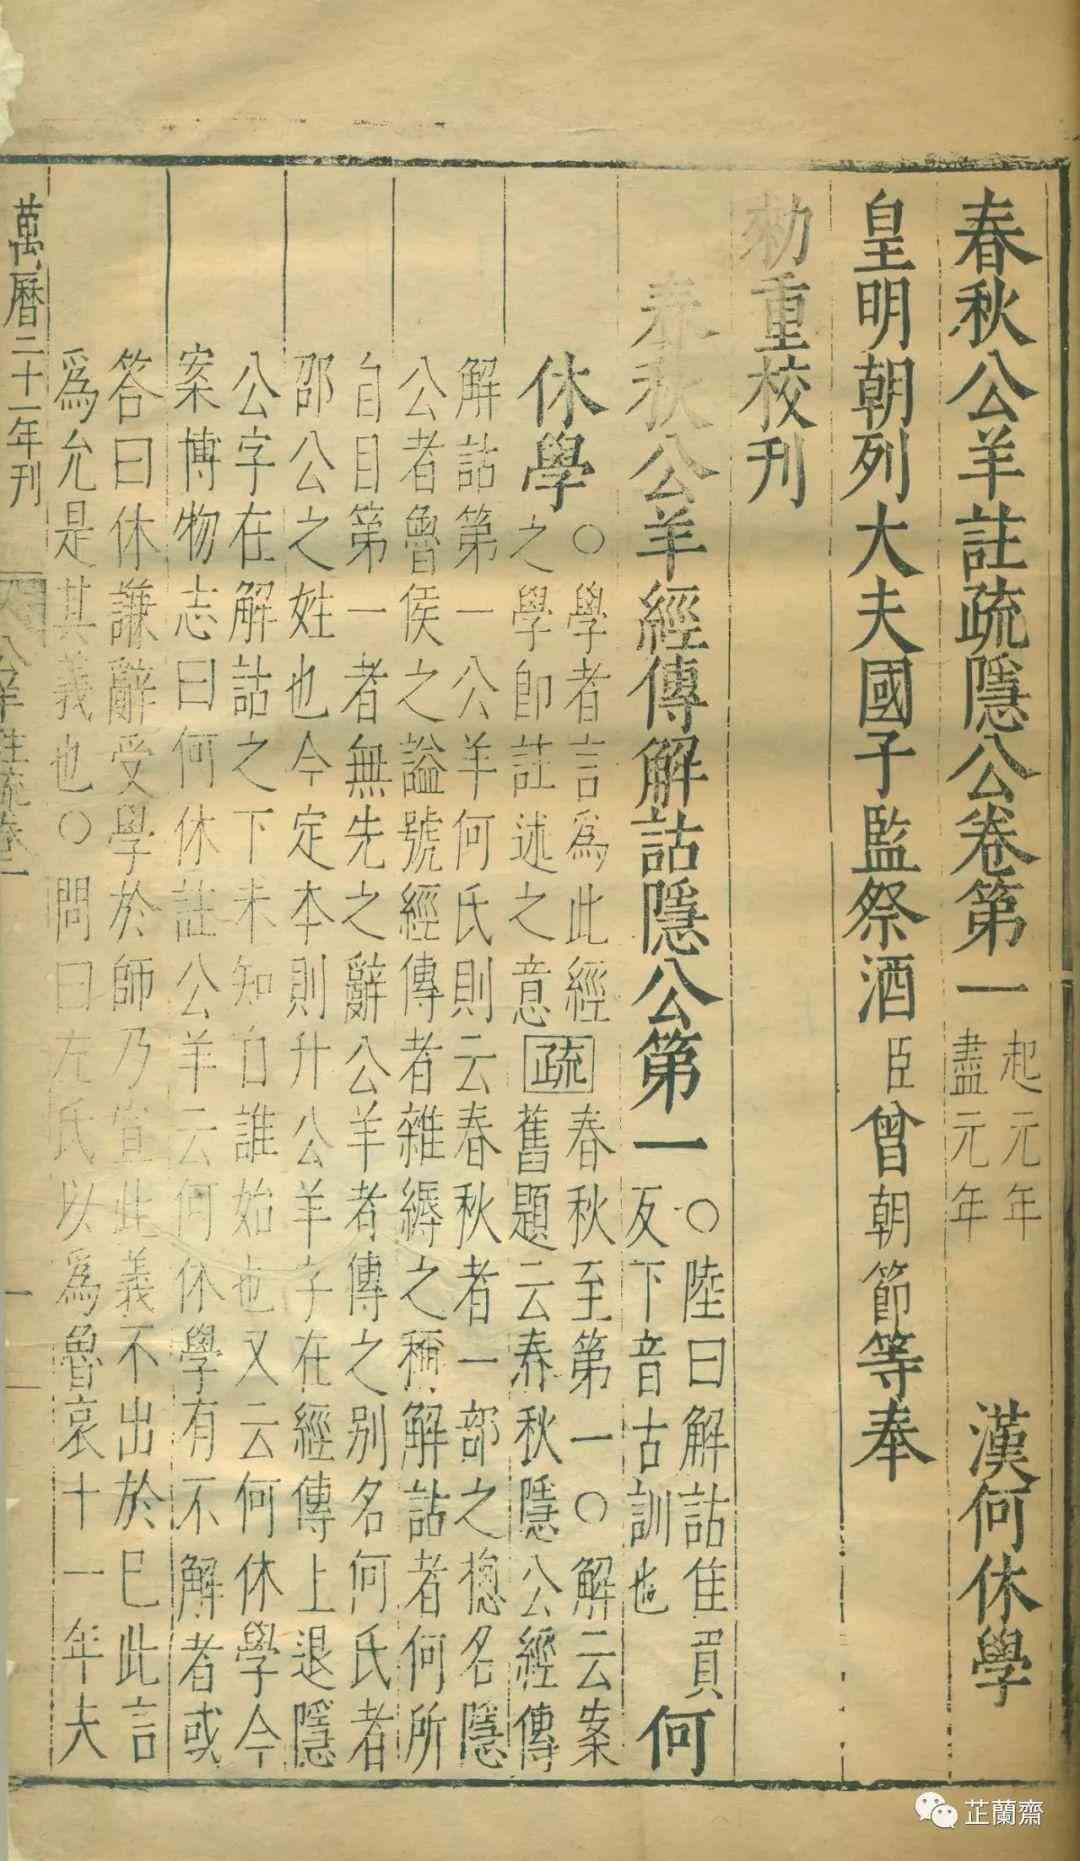 春秋公羊註疏隱公卷第一 起元年 盡元年 漢何休學
皇明朝列大夫國子監祭酒臣曾朝節等奉
勑重校刊
春秋公羊經傳解詁隱公第一 ○陸曰解詁佳買
反下音古訓也 何
休學 ○學者言爲此經
之學即註述之意 疏 春秋至第一○解云案
舊題云春秋隱公經傳
解詁第一公羊何氏則云春秋者一部之揔名隱
公者魯侯之謚號經傳者雜縟之稱解詁者何所
自目第一者無先之辭公羊者傳之別名何氏者
邵公之姓也今定本則升公羊字在經傳上退隱
公字在解詁之下未知自誰始也又云何休學今
案博物志曰何休註公羊云何休學有不解者或
答曰休謙辭受學於師乃宣此義不出於己此言
爲允是其義也○問曰左氏以爲魯哀十一年夫
萬曆二十一年刊 公羊註疏卷一 一
芷蘭齋